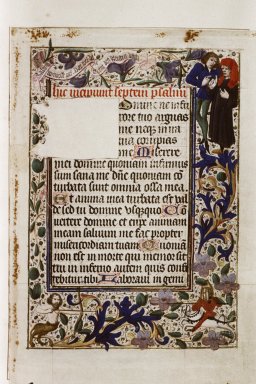 hic incipiunt septem psalmi
Domine ne in fu
rore tuo arguas
me neq; in ira
tua corripias
me Miserere
mei domine quoniam infirmus
sum sana me dñe quoniam cō
turbata sunt omnia ossa mea
Et anima mea turbata est val
de sed tu domine usquequo Cō
vertere domine et eripe animam
meam salvum me fac propter
misericordiam tuam Quoniā
non est in morte qui memor sit
tui in inferno autem quis confi
tebitur tibi Laboravi in gemi